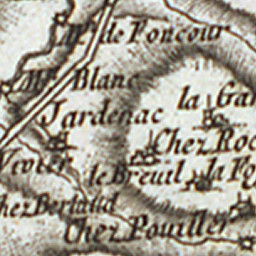 de Foncour
Blanc
Jardenac
la Gar
Chez Roc
Vivier
le Breuil
la Fo
hez Bertaud
Chez Pouillet